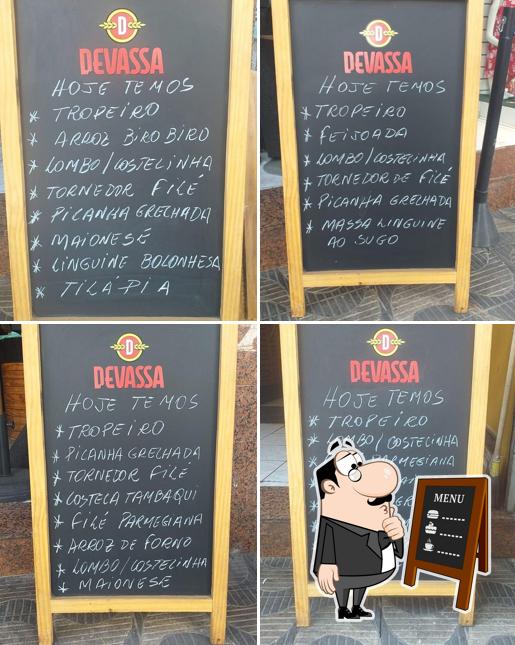 D
DEVASSA
HOJE TEMOS
* TROPEIRO
* ARROZ BIRO BIRO
* LOMBO/COSTELINHA
* TORNEDOR FILÉ
* PICANHA GRELHADA
* MAIONESE
* LINGUINE BOLONHESA
* TILAPIA
D
DEVASSA
HOJE TEMOS
* TROPEIRO
* FEIJOADA
* LOMBO/COSTELINHA
* TORNEDOR DE FILÉ
* PICANHA GRELHADA
* MASSA LINGUINE
AO SUGO
D
DEVASSA
HOJE TEMOS
* TROPEIRO
* PICANHA GRELHADA
* TORNEDOR FILÉ
* COSTELA TAMBAQUI
* FILÉ PARMEGIANA
* ARROZ DE FORNO
* LOMBO/COSTELINHA
* MAIONESE
D
DEVASSA
HOJE TEMOS
* TROPEIRO
* LOMBO/COSTELINHA
PARMEGIANA
MENU